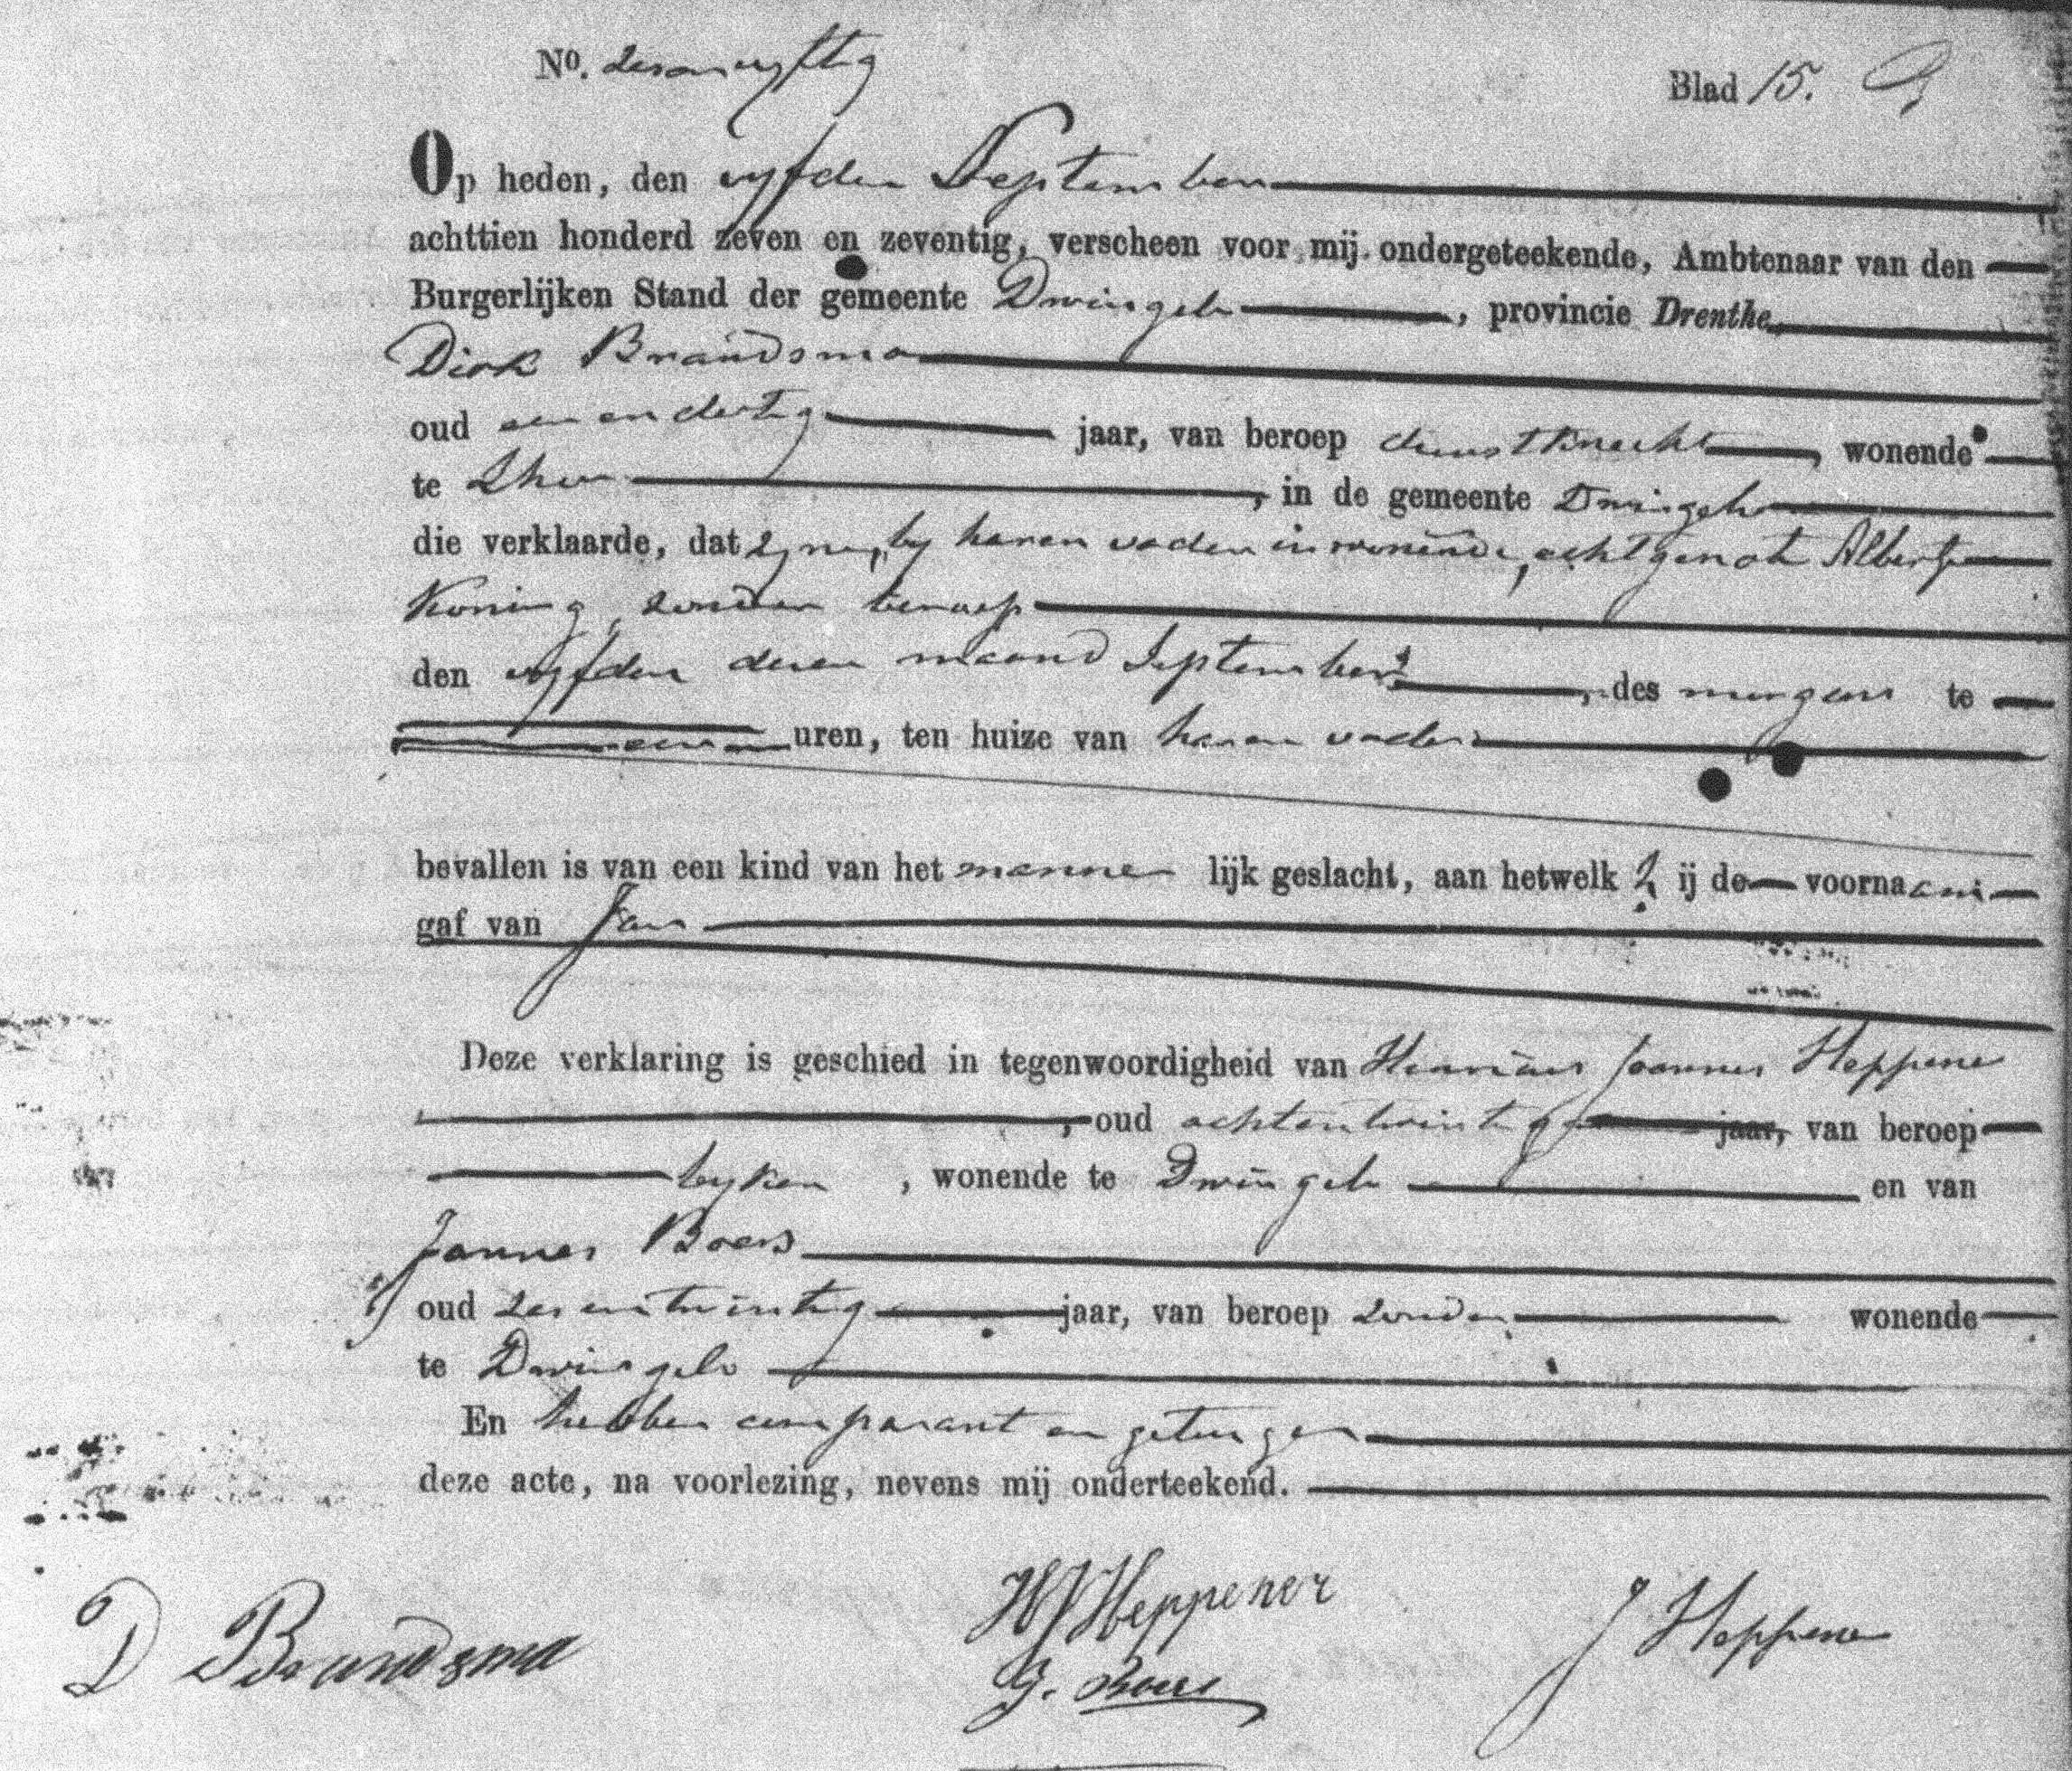 No. zesenvyftig Blad 15.
Op heden, den vyfden September
achttien honderd zeven en zeventig, verscheen voor mij ondergeteekende, Ambtenaar van den
Burgerlijken Stand der gemeente Dwingelo, provincie Drenthe
Dirk Brandsma
oud een en dertig jaar, van beroep dienstknecht, wonende
te Lhee, in de gemeente Dwingelo
die verklaarde, dat zyne, by haren vader inwonende, echtgenote Albertje
Koning, zonder beroep
den vyfden dezer maand September, des morgens te
een uren, ten huize van haren vader
bevallen is van een kind van het manne lijk geslacht, aan hetwelk h ij de voornaam
gaf van Jan
Deze verklaring is geschied in tegenwoordigheid van Henricus Joannes Heppener
, oud achtentwintig jaar, van beroep
, wonende te Dwingelo en van
Jannes Boers
oud zesentwintig jaar, van beroep zonder wonende
te Dwingelo
En hebben comparant en getuigen
deze acte, na voorlezing, nevens mij onderteekend.
D Brandsma
HJHeppener
J Heppener
J. Boers